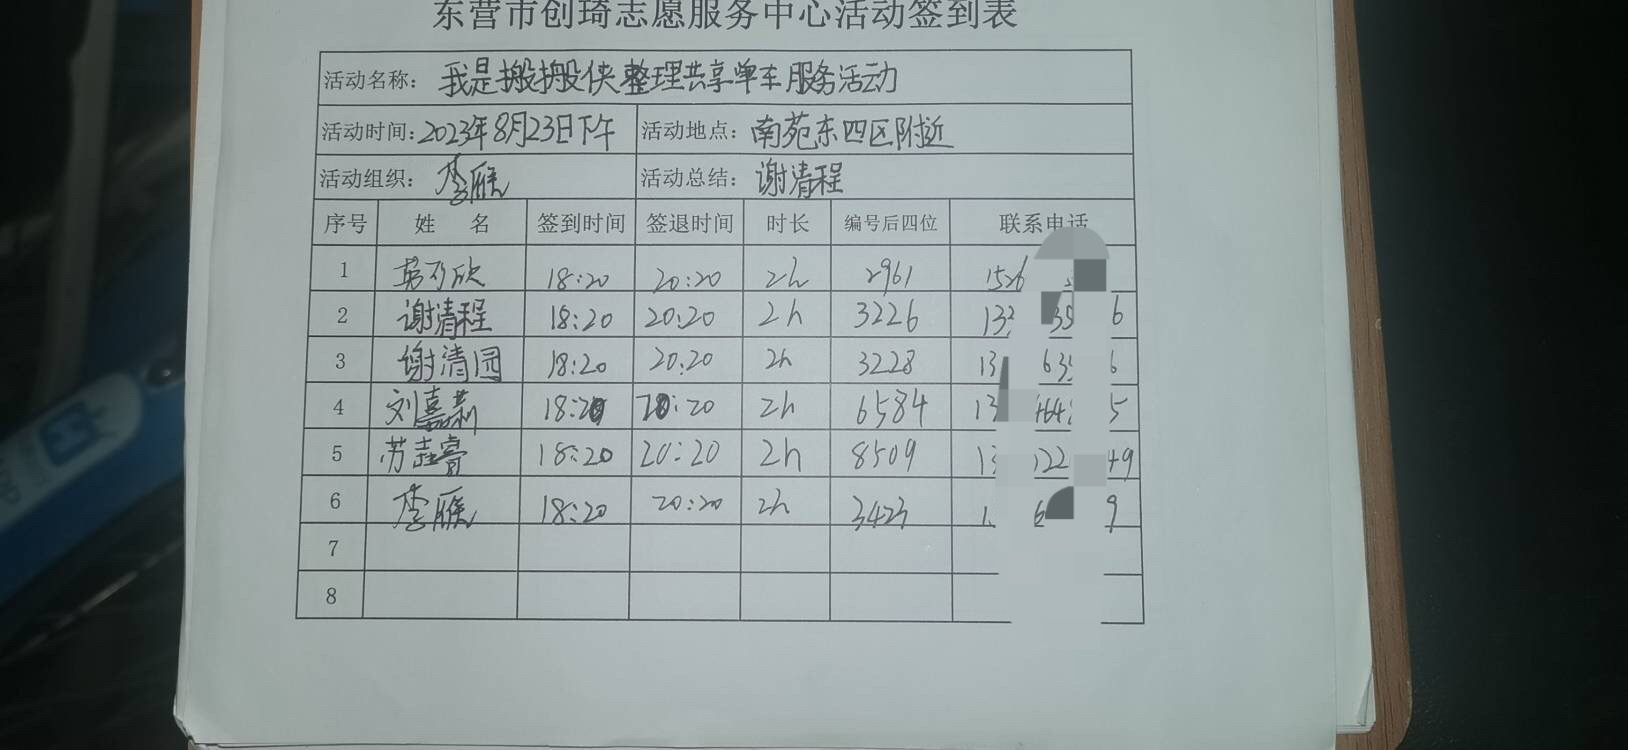 东营市创琦志愿服务中心活动签到表
活动名称: 我是搬搬侠整理共享单车服务活动
活动时间: 2023年8月23日下午 活动地点: 南苑东四区附近
活动组织: 李雁 活动总结: 谢清程
序号 姓 名 签到时间 签退时间 时长 编号后四位 联系电话
1 18:20 20:20 2h 2961 1526
2 谢清程 18:20 20:20 2h 3226 6
3 谢清园 18:20 20:20 2h 3228 6
4 刘嘉 18:20 20:20 2h 6584 5
5 苏 18:20 20:20 2h 8509 49
6 李雁 18:20 20:20 2h 3423 9
7
8